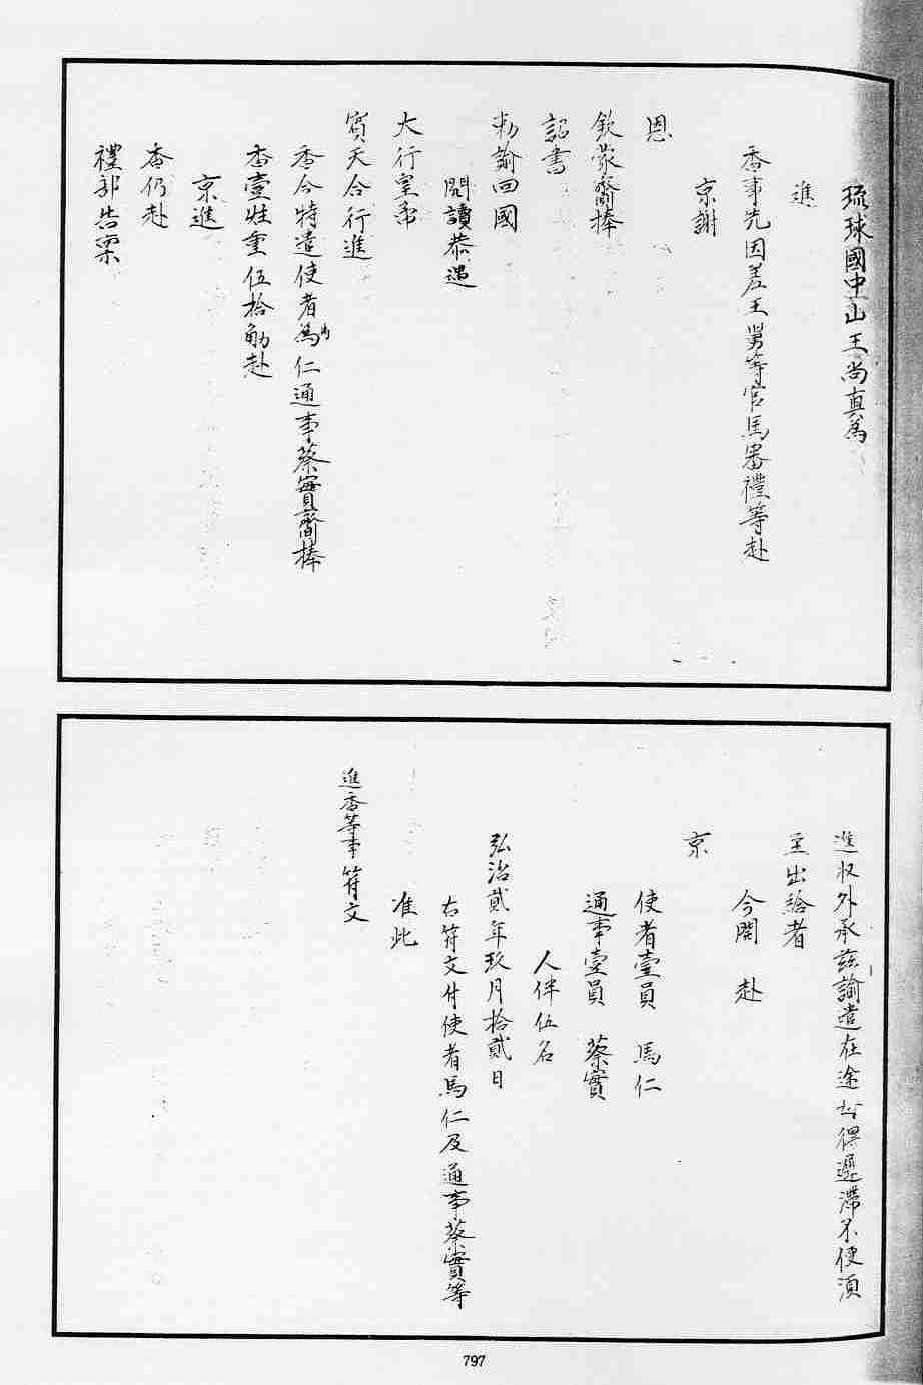 琉球國中山王尚真為
進
香事先因差王舅等官馬審禮等赴
京謝
恩
欽蒙齎捧
詔書
勅諭回國
開讀恭遇
大行皇帝
賓天合行進
香合特遣使者馬仁通事蔡實齎捧
香壹炷重伍拾觔赴
京進
香仍赴
禮部告稟
進収外承茲諭遣在途毋得遲滯不便須
至出給者
今開 赴
京
使者壹員 馬仁
通事壹員 蔡實
人伴伍名
弘治貳年玖月拾貳日
右符文付使者馬仁及通事蔡實等
准此
進香等事符文
797